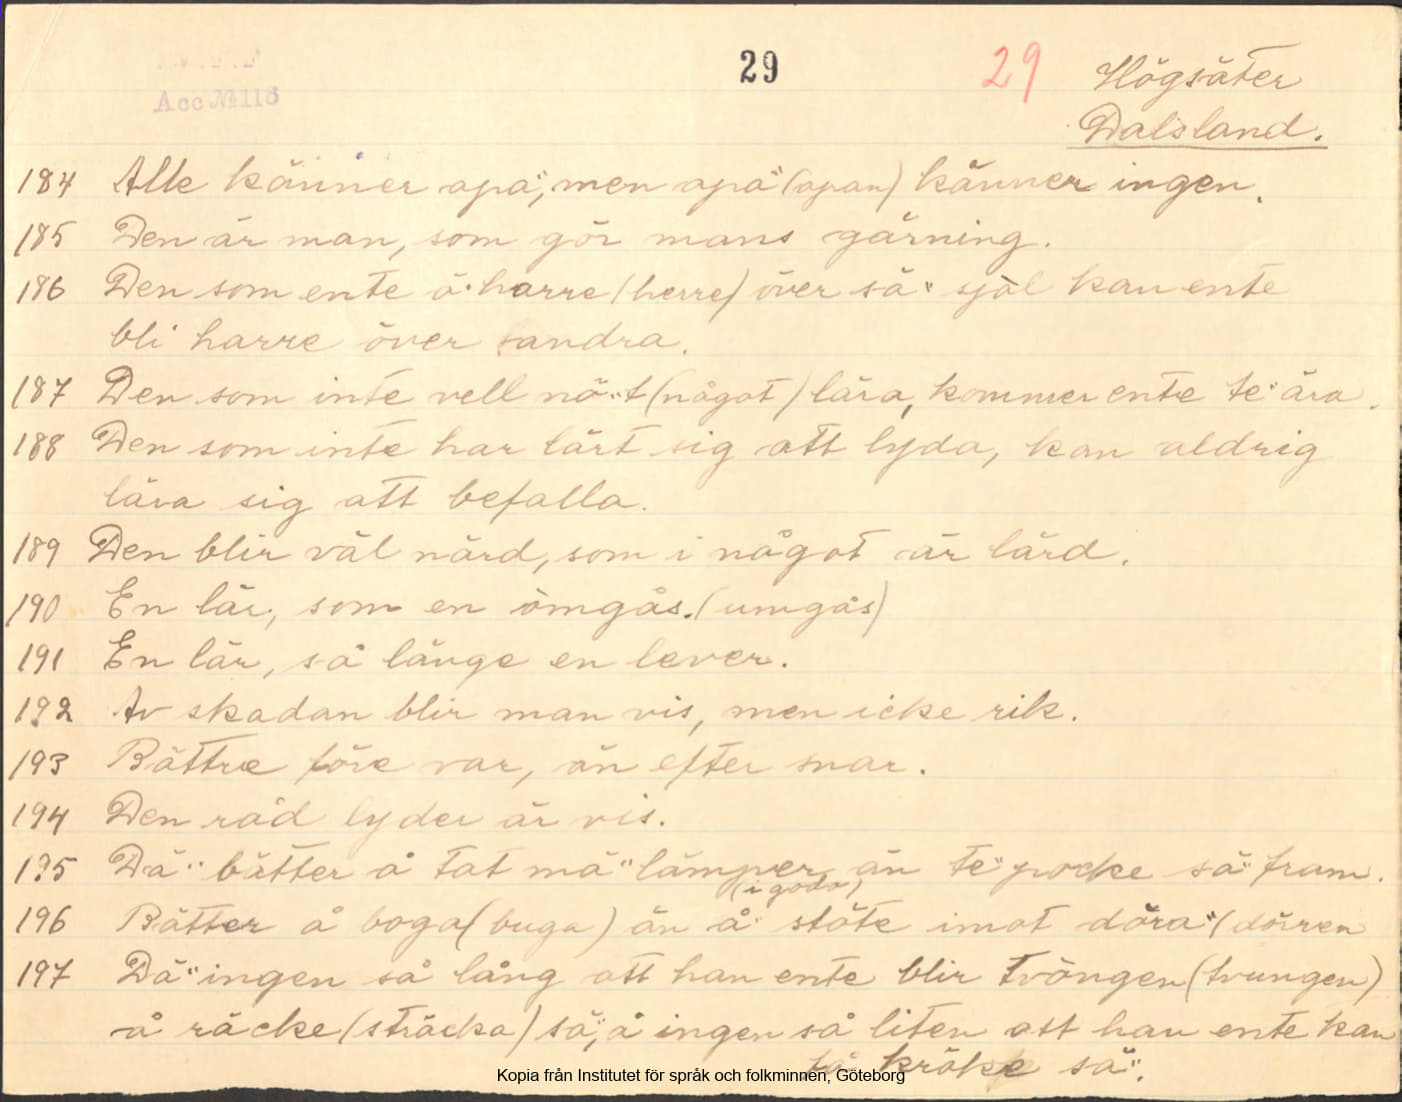 Acc № 118
29
29
Högsäter
Dalsland.
184 Alle känner apa", men apa" (apan) känner ingen.
185 Den är man, som gör mans gärning.
186 Den som ente ä· harre (herre) över sä" själ kan ente
bli harre över andra.
187 Den som inte vell nö"t (något) lära, kommer ente te" ära.
188 Den som inte har lärt sig att lyda, kan aldrig
lära sig att befalla.
189 Den blir väl närd, som i något är lärd.
190 En lär, som en ömgås. (umgås)
191 En lär, så länge en lever.
192 Av skadan blir man vis, men icke rik.
193 Bättre före var, än efter snar.
194 Den råd lyder är vis.
195 Dä" bätter å tat mä" lämper än te" pocke sä" fram.
(i godo)
196 Bätter å boga (buga) än å" stöte imot döra" (dörren
197 Dä" ingen så lång att han ente blir tvöngen (tvungen)
å räcke (sträcka) sä", å ingen så liten att han ente kan
få kröke sä".
Kopia från Institutet för språk och folkminnen, Göteborg